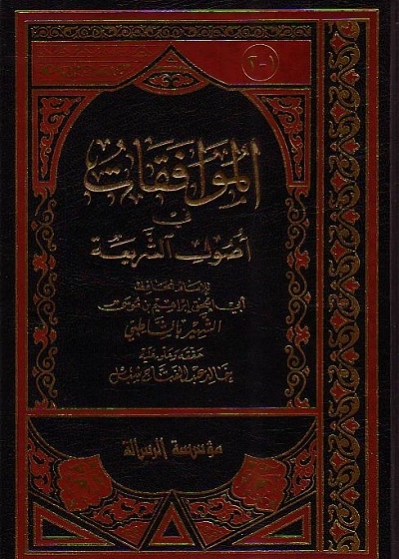 ١-٢
الموافقات
في
أصول الشريعة
للإمام الحافظ
أبي إسحق إبراهيم بن موسى
الشهير بالشاطبي
حققه وعلق عليه
خالد عبد الفتاح شبل
مؤسسة الرسالة